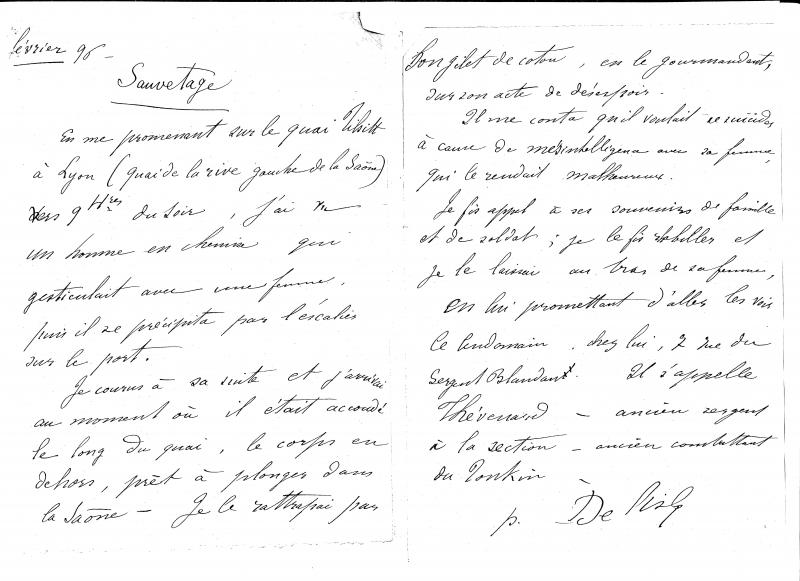 février 96 -
Sauvetage
En me promenant sur le quai Tilsitt
à Lyon (quai de la rive gauche de la Saône)
vers 9 Hres du soir, j'ai vu
un homme en chemise qui
gesticulait avec une femme,
puis il se précipita par l'escalier
sur le port.
Je courus à sa suite et j'arrivai
au moment où il était accoudé
le long du quai, le corps en
dehors, prêt à plonger dans
la Saône — Je le rattrapai par
son gilet de coton, en le gourmandant,
sur son acte de désespoir.
Il me conta qu'il voulait se suicider
à cause de mésintelligence avec sa femme,
qui le rendait malheureux.
Je fis appel à ses souvenirs de famille
et de soldat; je le fis rhabiller et
je le laissai au bras de sa femme,
en lui promettant d'aller les voir
le lendemain, chez lui, 2 rue du
Sergent Blandan. Il s'appelle
Thévenard — ancien sergent
à la section — ancien combattant
du Tonkin —
p. De